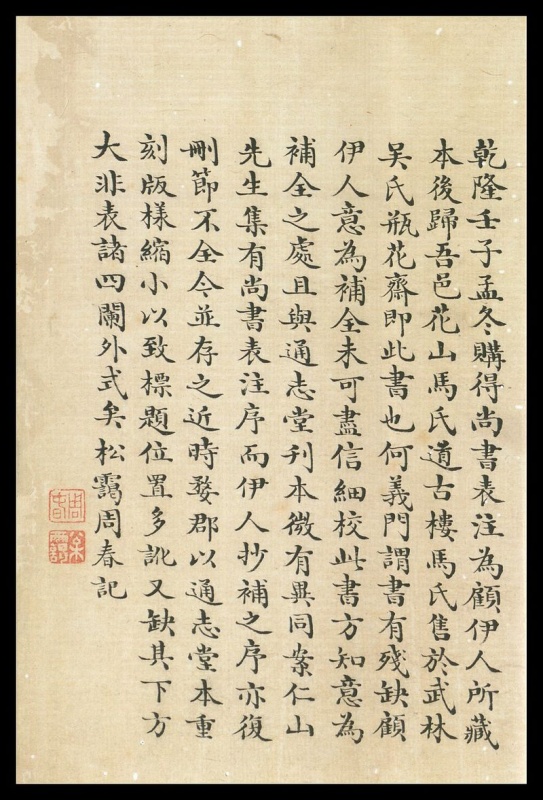 乾隆壬子孟冬購得尚書表注為顧伊人所藏
本後歸吾邑花山馬氏道古樓馬氏售於武林
吳氏瓶花齋即此書也何義門謂書有殘缺顧
伊人意為補全未可盡信細校此書方知意為
補全之處且與通志堂刊本微有異同案仁山
先生集有尚書表注序而伊人抄補之序亦復
刪節不全今並存之近時婺郡以通志堂本重
刻版樣縮小以致標題位置多訛又缺其下方
大非表諸四闌外式矣松靄周春記
周春
松靄